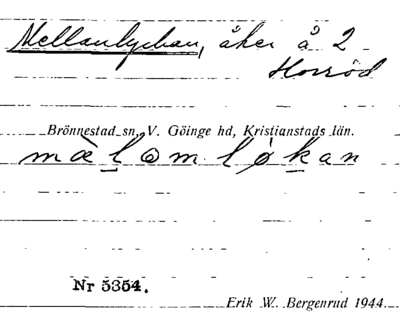 Mellanlyckan, åker å 2
Horröd
Brönnestad sn, V. Göinge hd, Kristianstads län.
mæ̀l̲omløk̲an
Nr 5354.
Erik W. Bergenrud 1944.